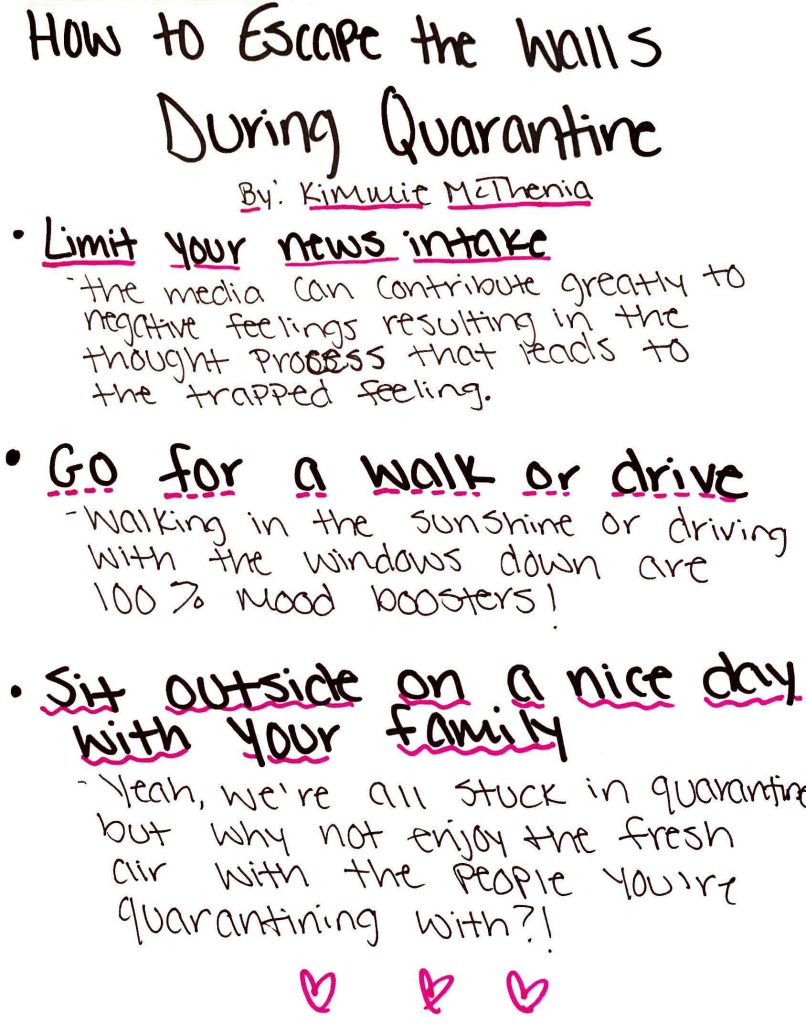 How to Escape the Walls
During Quarantine
By: Kimmie McThenia
• Limit your news intake
- the media can contribute greatly to
negative feelings resulting in the
thought process that leads to
the trapped feeling.
• Go for a walk or drive
- Walking in the sunshine or driving
with the windows down are
100% mood boosters!
• Sit outside on a nice day
with your family
- Yeah, we're all stuck in quarantine
but why not enjoy the fresh
air with the people you're
quarantining with?!